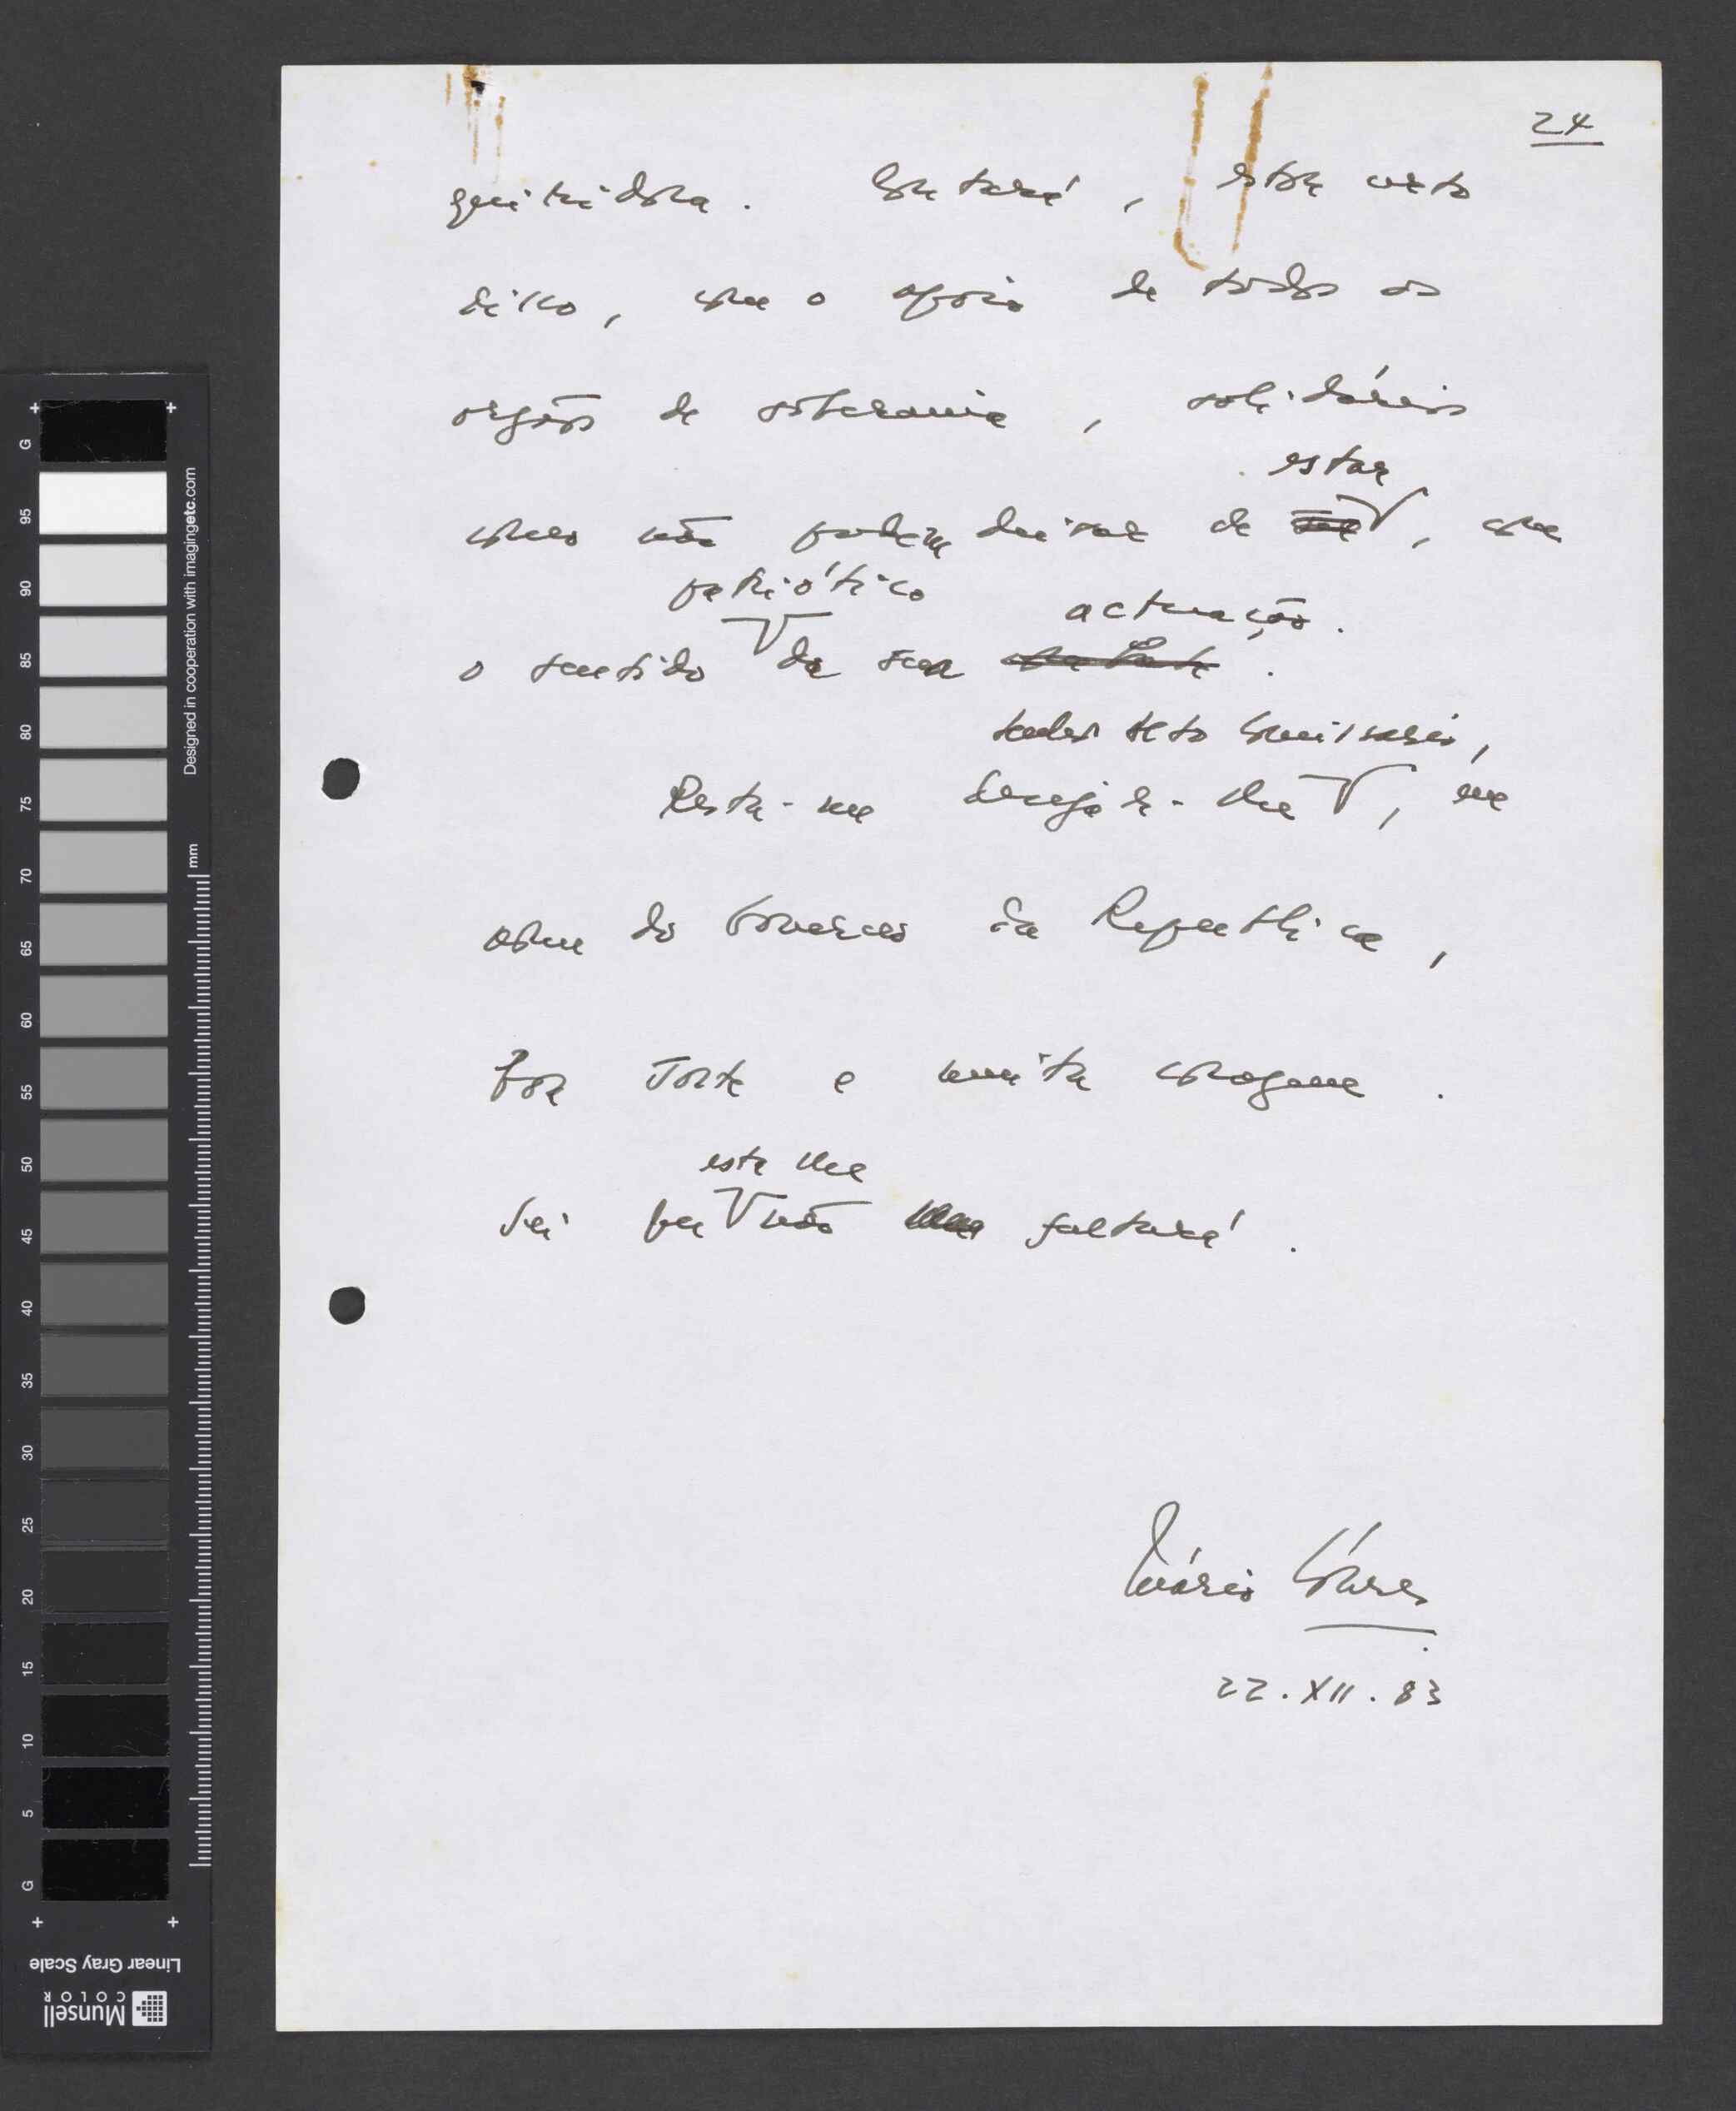 24
Contará, estou certo
disso, com o apoio de todos os
orgãos de soberania, solidários
estar
como não podem deixar de ser, com
patriótico actuação.
o sentido da sua .
Senhor Alto Comissário,
Resta-me desejar-lhe, em
nome do Governo da República,
boa sorte e muita coragem.
esta lhe
Sei que não lhe faltará.
Mário Soares
22.XII.83
G
95
90
85
80
75
70
65
60
55
50
45
40
35
30
25
20
15
10
5
G
mm
Designed in cooperation with imagingetc.com
Linear Gray Scale
Munsell
COLOR